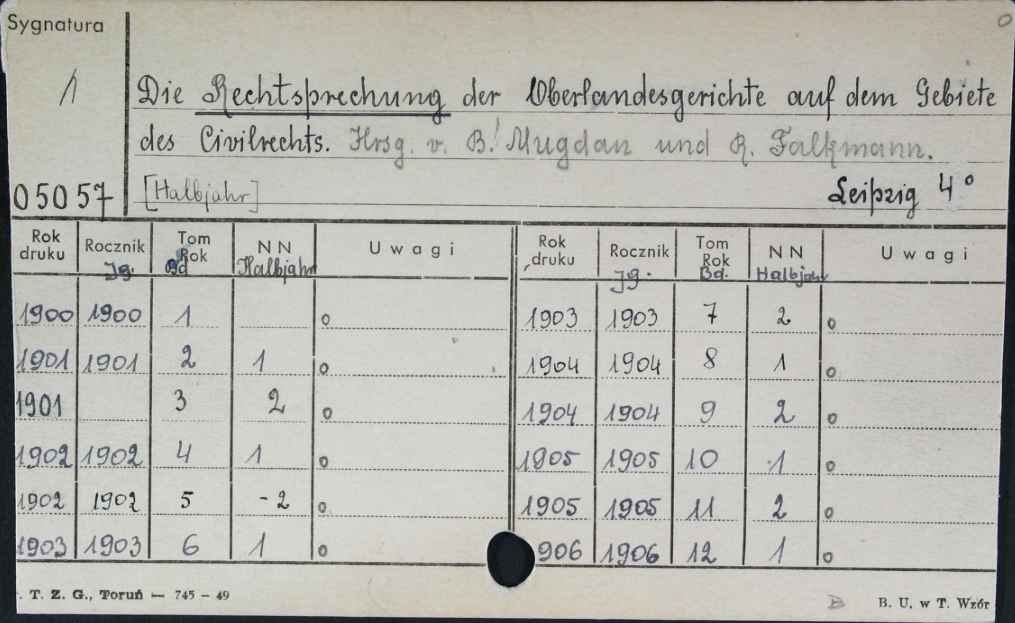 Sygnatura
1
Die Rechtsprechung der Oberlandesgerichte auf dem Gebiete
des Civilrechts. Hrsg. v. B. Mugdan und R. Falkmann.
05057 [Halbjahr] Leipzig 4°
Rok druku Rocznik Jg. Tom Rok Bd NN Halbjahr Uwagi Rok druku Rocznik Jg. Tom Rok Bd. NN Halbjahr Uwagi
1900 1900 1 o 1903 1903 7 2 o
1901 1901 2 1 o 1904 1904 8 1 o
1901 3 2 o 1904 1904 9 2 o
1902 1902 4 1 o 1905 1905 10 1 o
1902 1902 5 - 2 o 1905 1905 11 2 o
1903 1903 6 1 o 906 1906 12 1 o
T. Z. G., Toruń — 745 – 49 B B. U. w T. Wzór